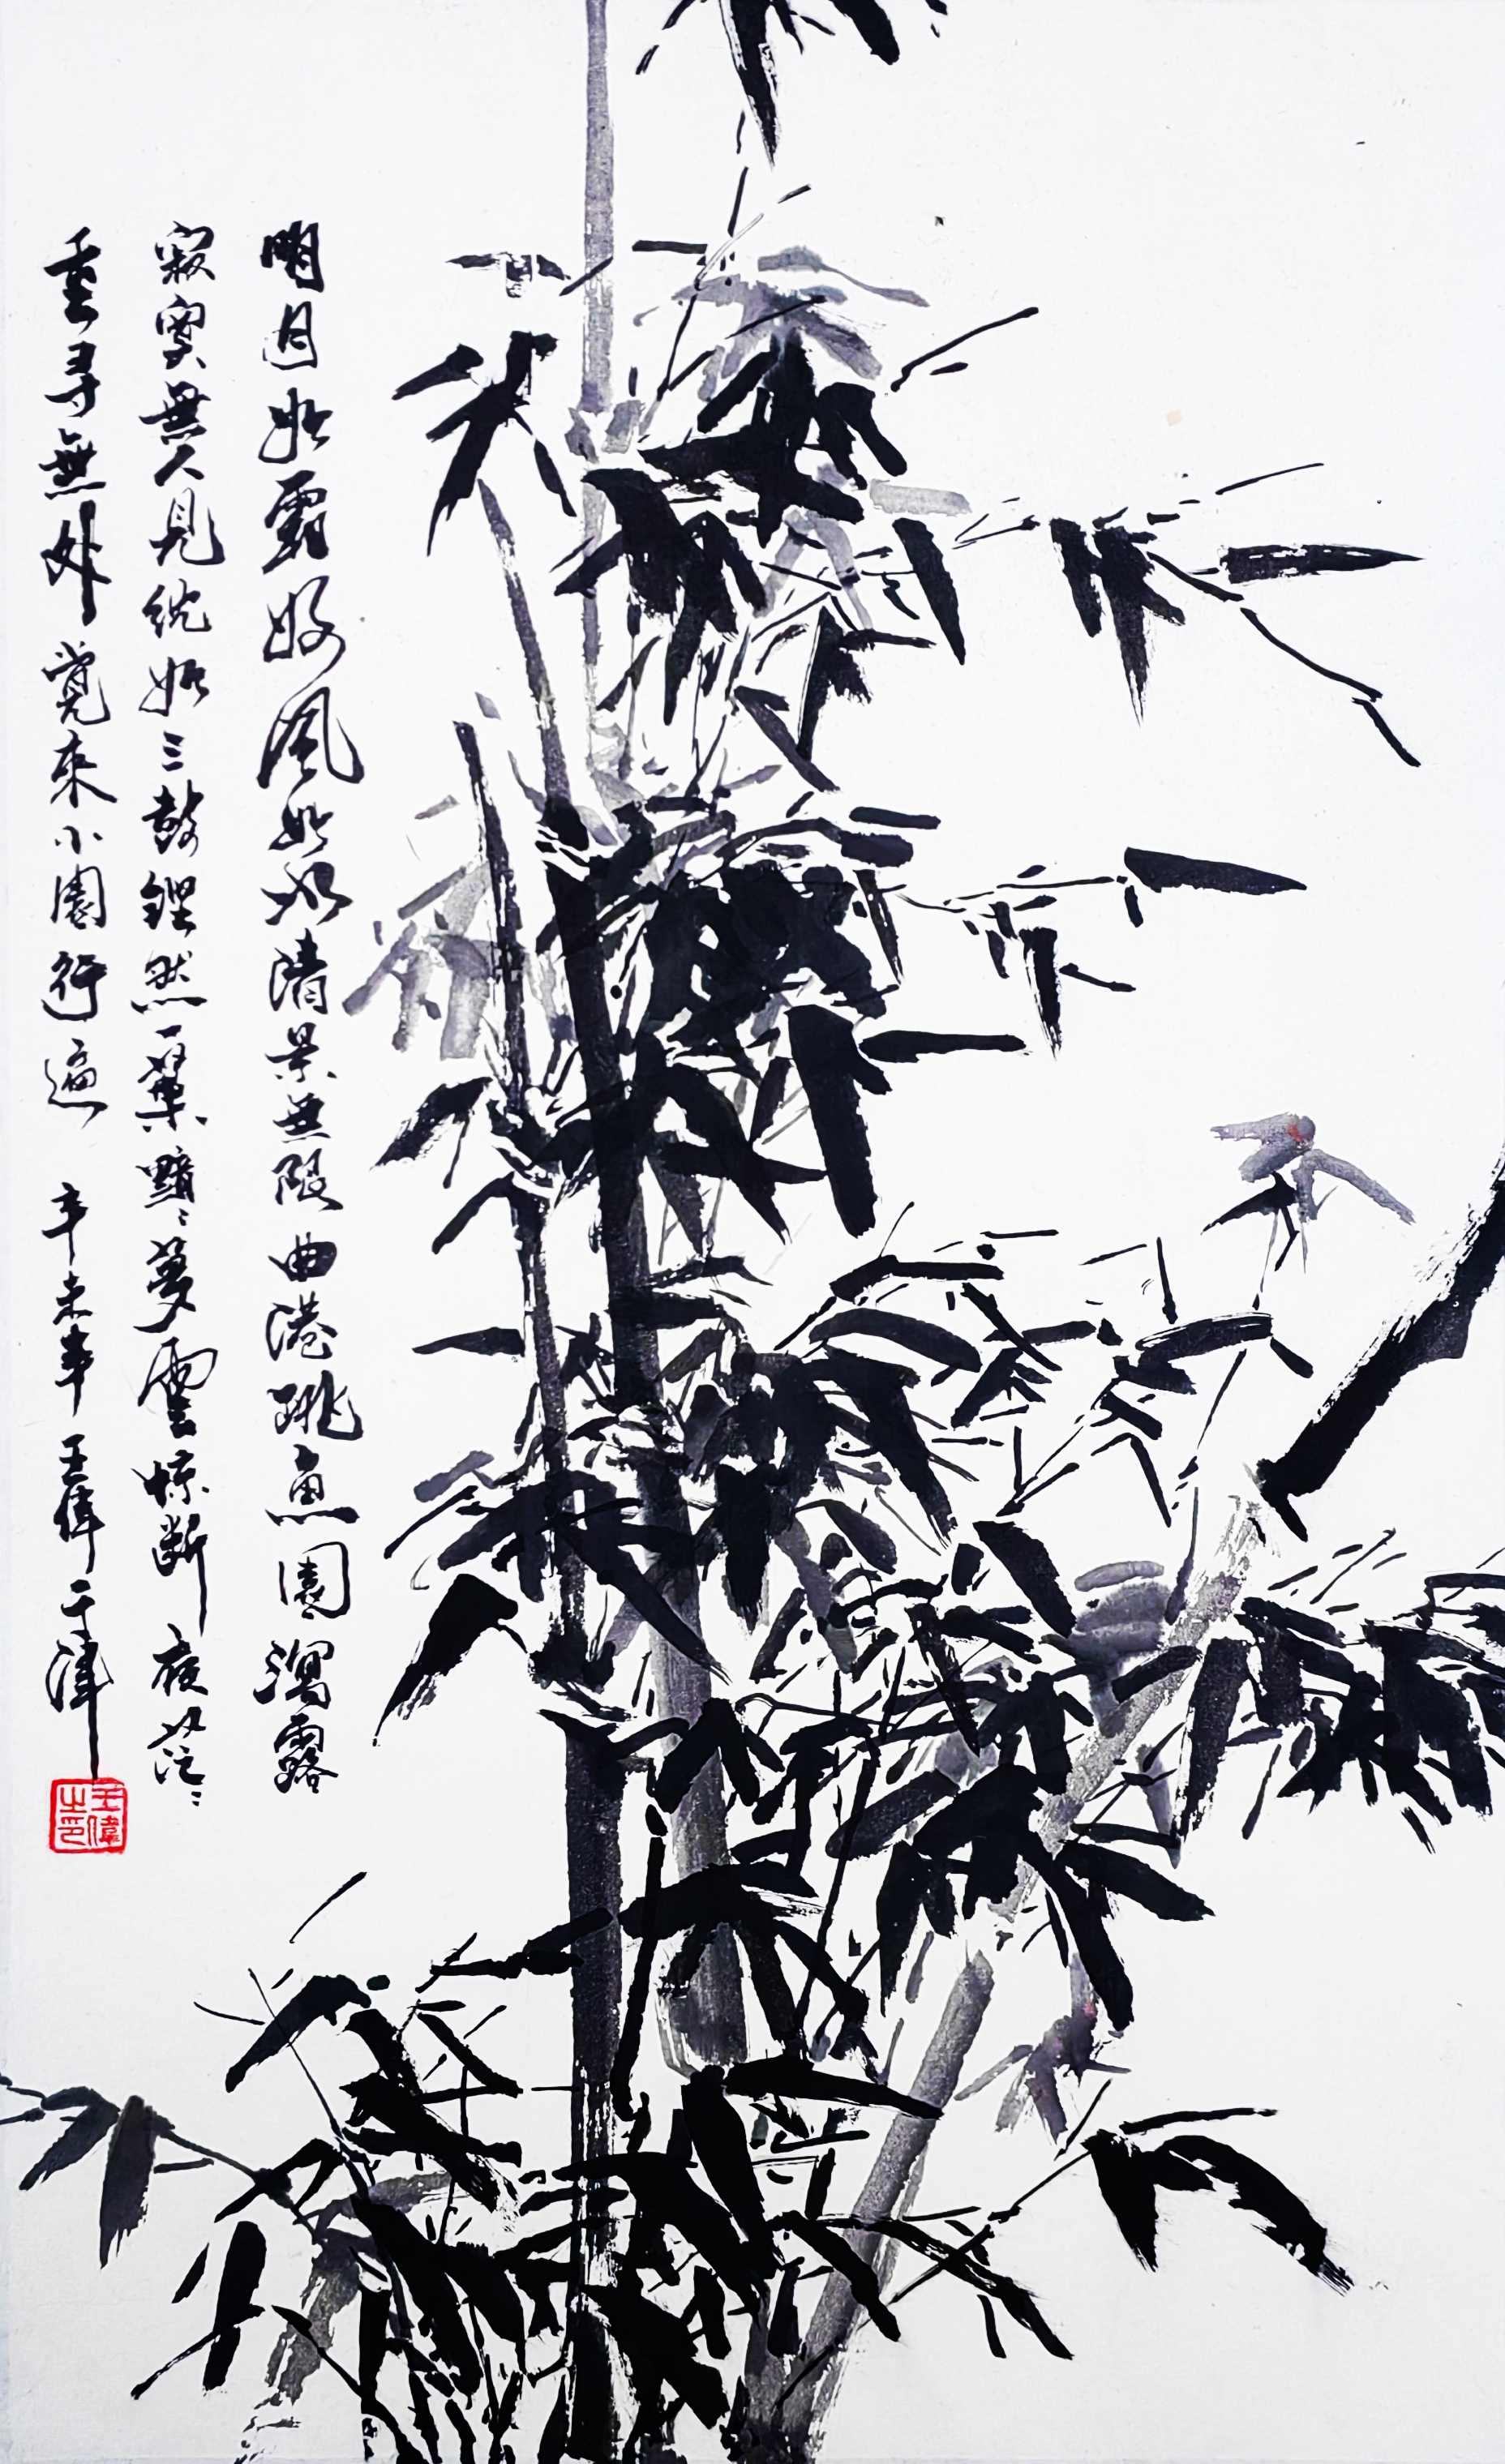 明月如霜好風如水清景無限曲港跳魚圓瀉露
寂寞無人見紞如三鼓鏗然一葉黯〻夢雲惊斷夜茫〻
重尋無处覺來小園行遍 辛未年 王偉于津
王偉之印